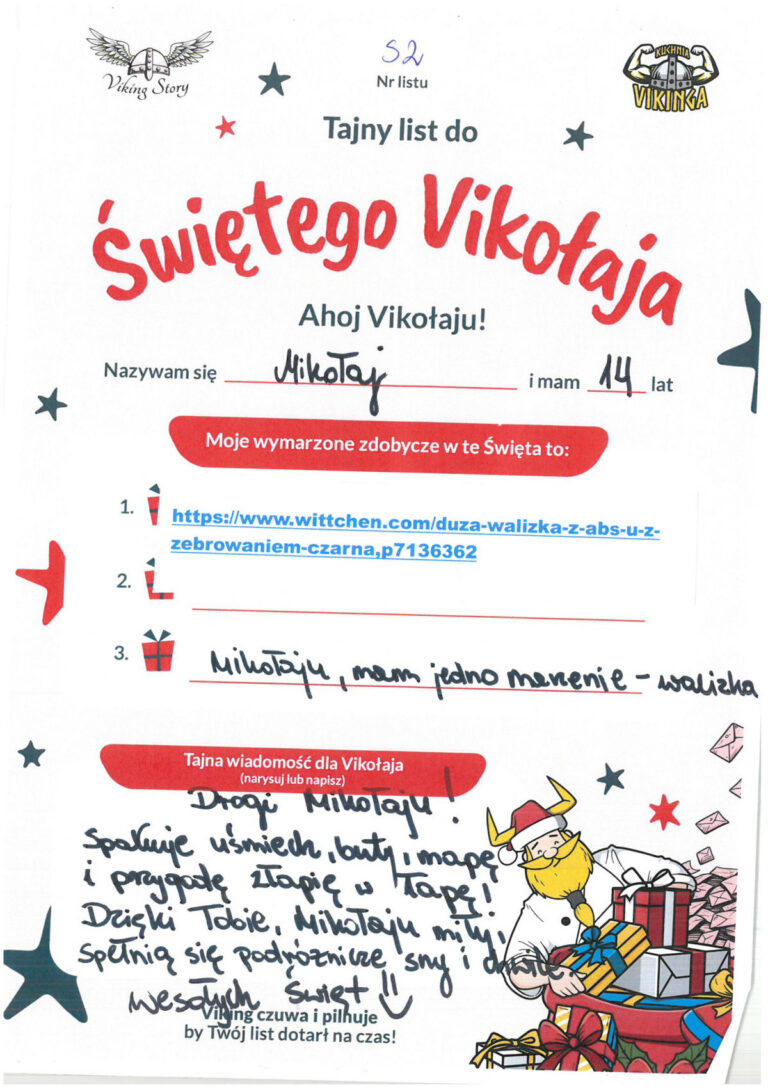 Viking Story
52
Nr listu
KUCHNIA
VIKINGA
Tajny list do
Świętego Vikołaja
Ahoj Vikołaju!
Nazywam się Mikołaj i mam 14 lat
Moje wymarzone zdobycze w te Święta to:
1. https://www.wittchen.com/duza-walizka-z-abs-u-z-
zebrowaniem-czarna,p7136362
2.
3. Mikołaju, mam jedno marzenie - walizka
Tajna wiadomość dla Vikołaja
(narysuj lub napisz)
Drogi Mikołaju!
Spakuję uśmiech, buty, mapę
i przygodę złapię w łapę!
Dzięki Tobie, Mikołaju miły,
spełnią się podróżnicze sny i
wesołych Świąt!!
Viking czuwa i pilnuje
by Twój list dotarł na czas!